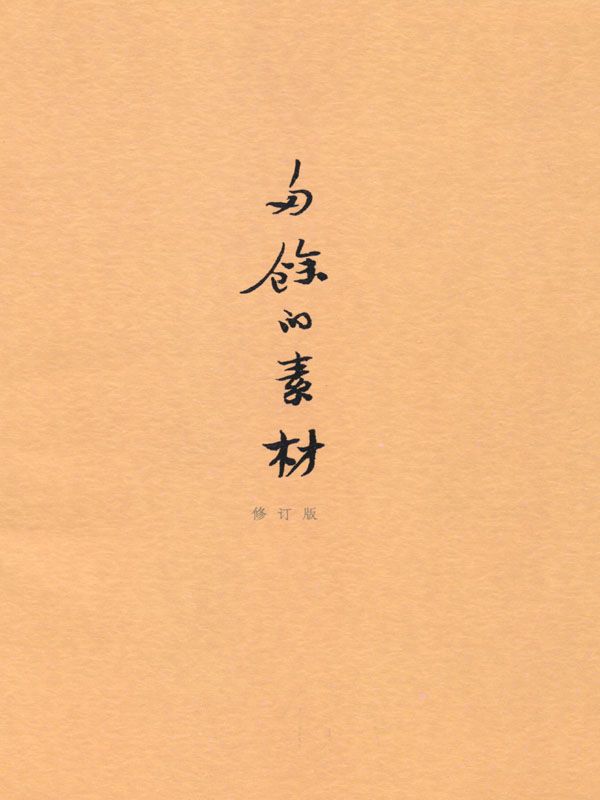 多餘的素材
修订版